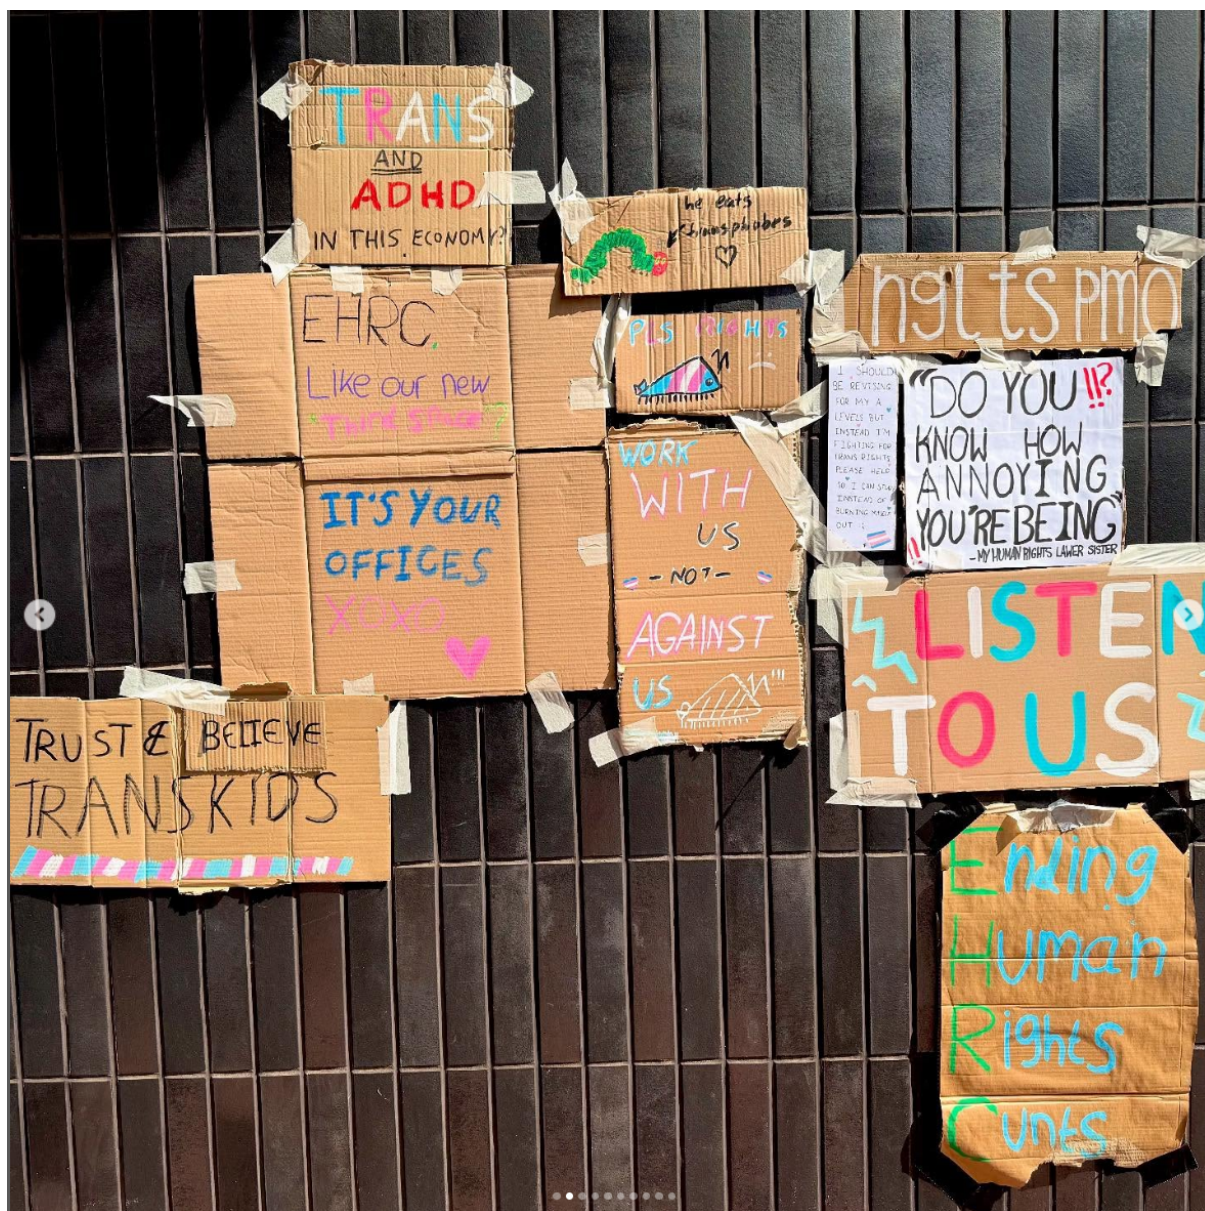 TRANS
AND
ADHD
IN THIS ECONOMY?
he eats
transphobes
EHRC,
Like our new
"Third Space"?
IT'S YOUR
OFFICES
XOXO
PLS RIGHTS
WORK
WITH
US
- NOT -
AGAINST
US
ngl ts pmo
I SHOULD
BE REVISING
FOR MY A
LEVELS BUT
INSTEAD I'M
FIGHTING FOR
TRANS RIGHTS
PLEASE HELP
SO I CAN STUDY
INSTEAD OF
BURNING MYSELF
OUT :
"DO YOU !!?
KNOW HOW
ANNOYING
YOU'RE BEING"
!!
- MY HUMAN RIGHTS LAWER SISTER
LISTEN
TO US
TRUST & BELIEVE
TRANS KIDS
Ending
Human
Rights
Cunts